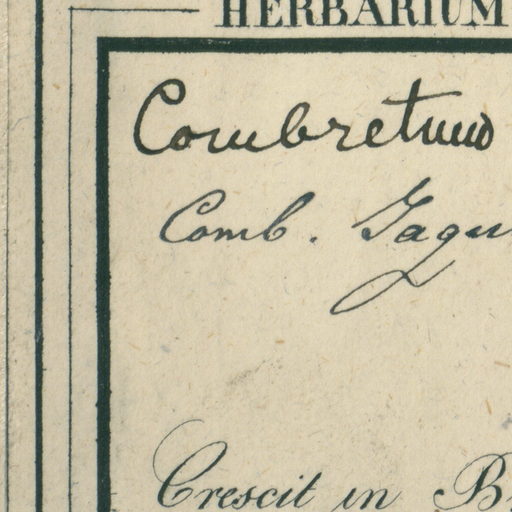 HERBARIUM
Combretum
Comb. Jaqu
Crescit in B